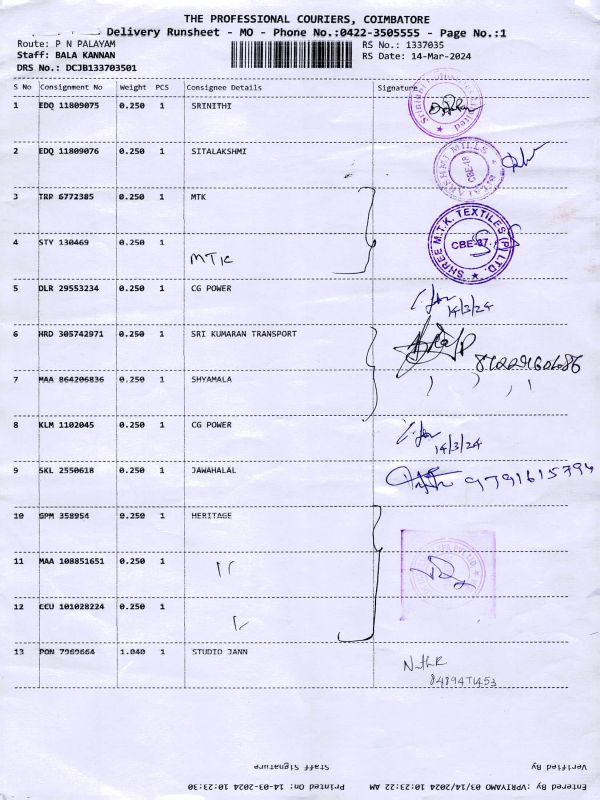 THE PROFESSIONAL COURIERS, COIMBATORE
Delivery Runsheet - MO - Phone No.:0422-3505555 - Page No.:1
Route: P N PALAYAM RS No.: 1337035
Staff: BALA KANNAN RS Date: 14-Mar-2024
DRS No.: DCJB133703501
S No Consignment No Weight PCS Consignee Details Signature
1 EDQ 11809075 0.250 1 SRINITHI
2 EDQ 11809076 0.250 1 SITALAKSHMI
CBE-18
3 TRP 6772385 0.250 1 MTK
SHREE M.T.K. TEXTILES (P) LTD.
CBE-37.
4 STY 130469 0.250 1
MTK
5 DLR 29553234 0.250 1 CG POWER
14/3/24
6 HRD 305742971 0.250 1 SRI KUMARAN TRANSPORT
7 MAA 864206836 0.250 1 SHYAMALA
8 KLM 1102045 0.250 1 CG POWER
14/3/24
9 SKL 2550618 0.250 1 JAWAHALAL
9791615794
10 GPM 358954 0.250 1 HERITAGE
11 MAA 108851651 0.250 1
12 CCU 101028224 0.250 1
13 PON 7969664 1.040 1 STUDIO JANN
Verified By Staff Signature
Entered By: VPRIYAMO 03/14/2024 10:23:22 AM Printed On: 14-03-2024 10:23:30